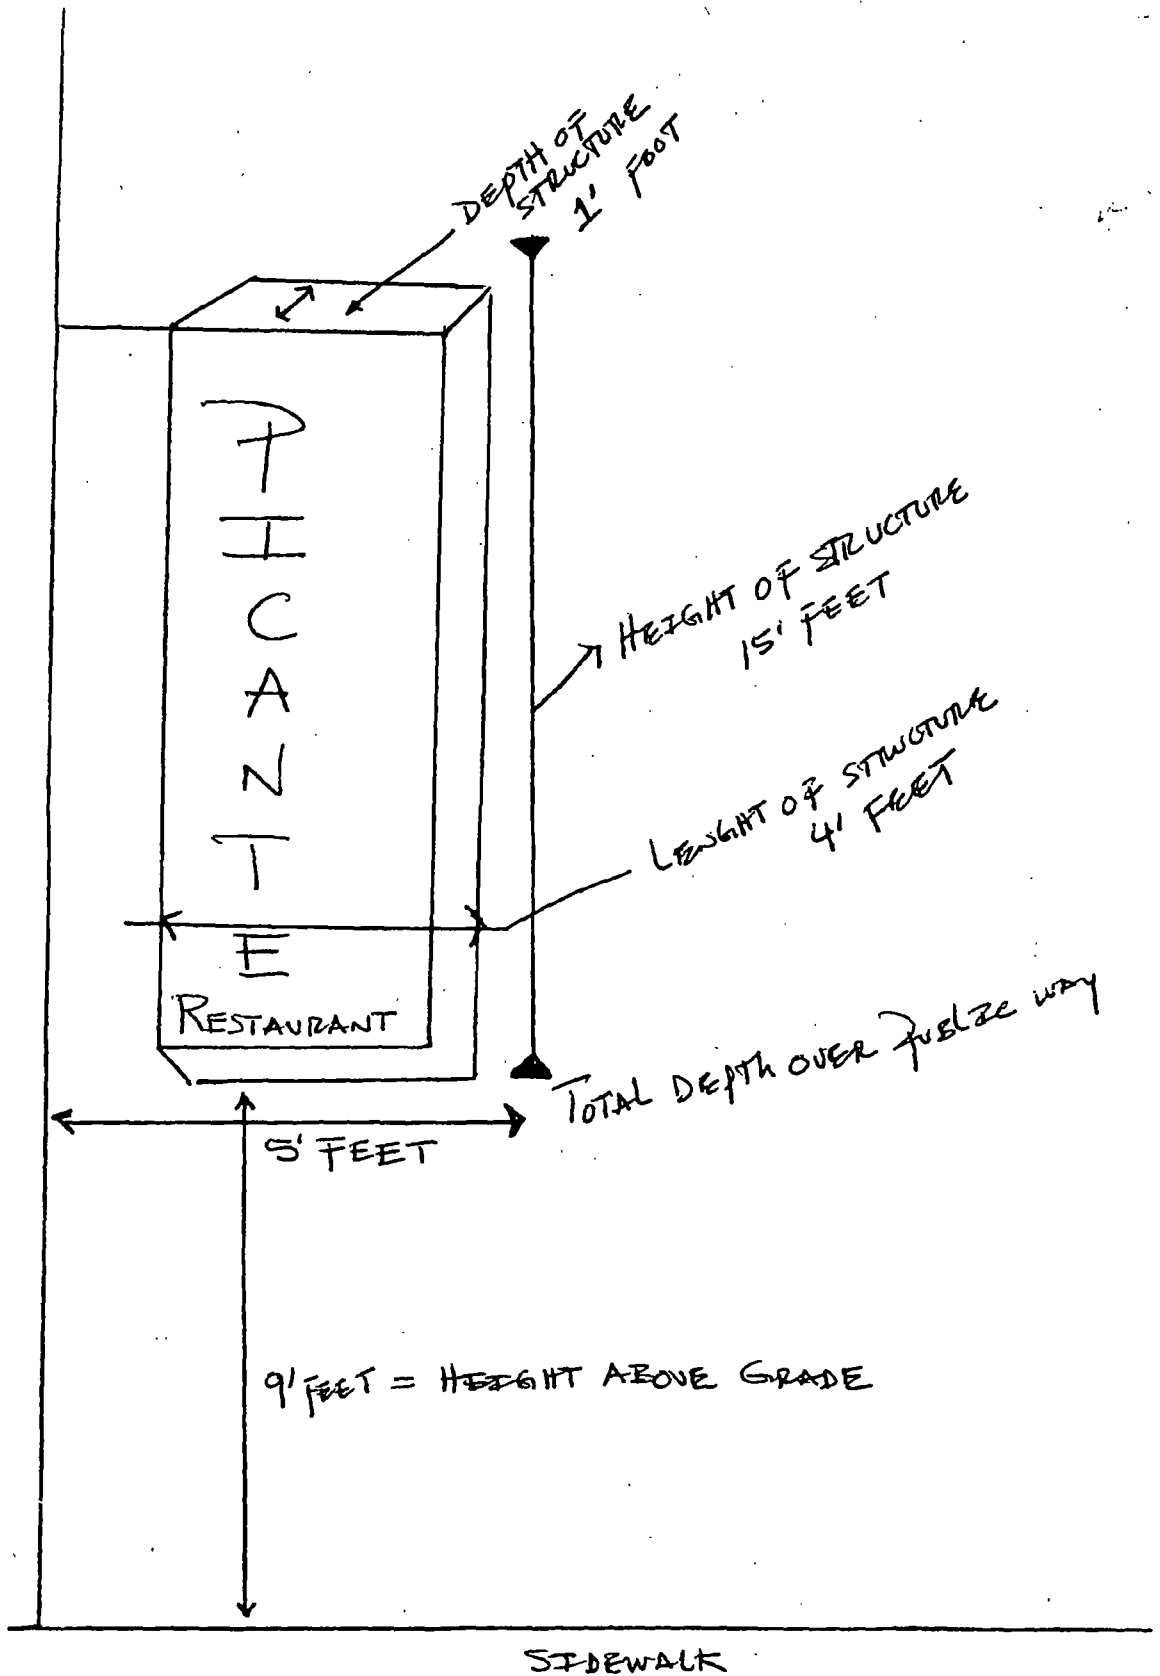 DEPTH OF
STRUCTURE
1' FOOT
P
I
C
A
N
T
E
RESTAURANT
HEIGHT OF STRUCTURE
15' FEET
LENGHT OF STRUCTURE
4' FEET
TOTAL DEPTH OVER PUBLIC WAY
5' FEET
9' FEET = HEIGHT ABOVE GRADE
SIDEWALK